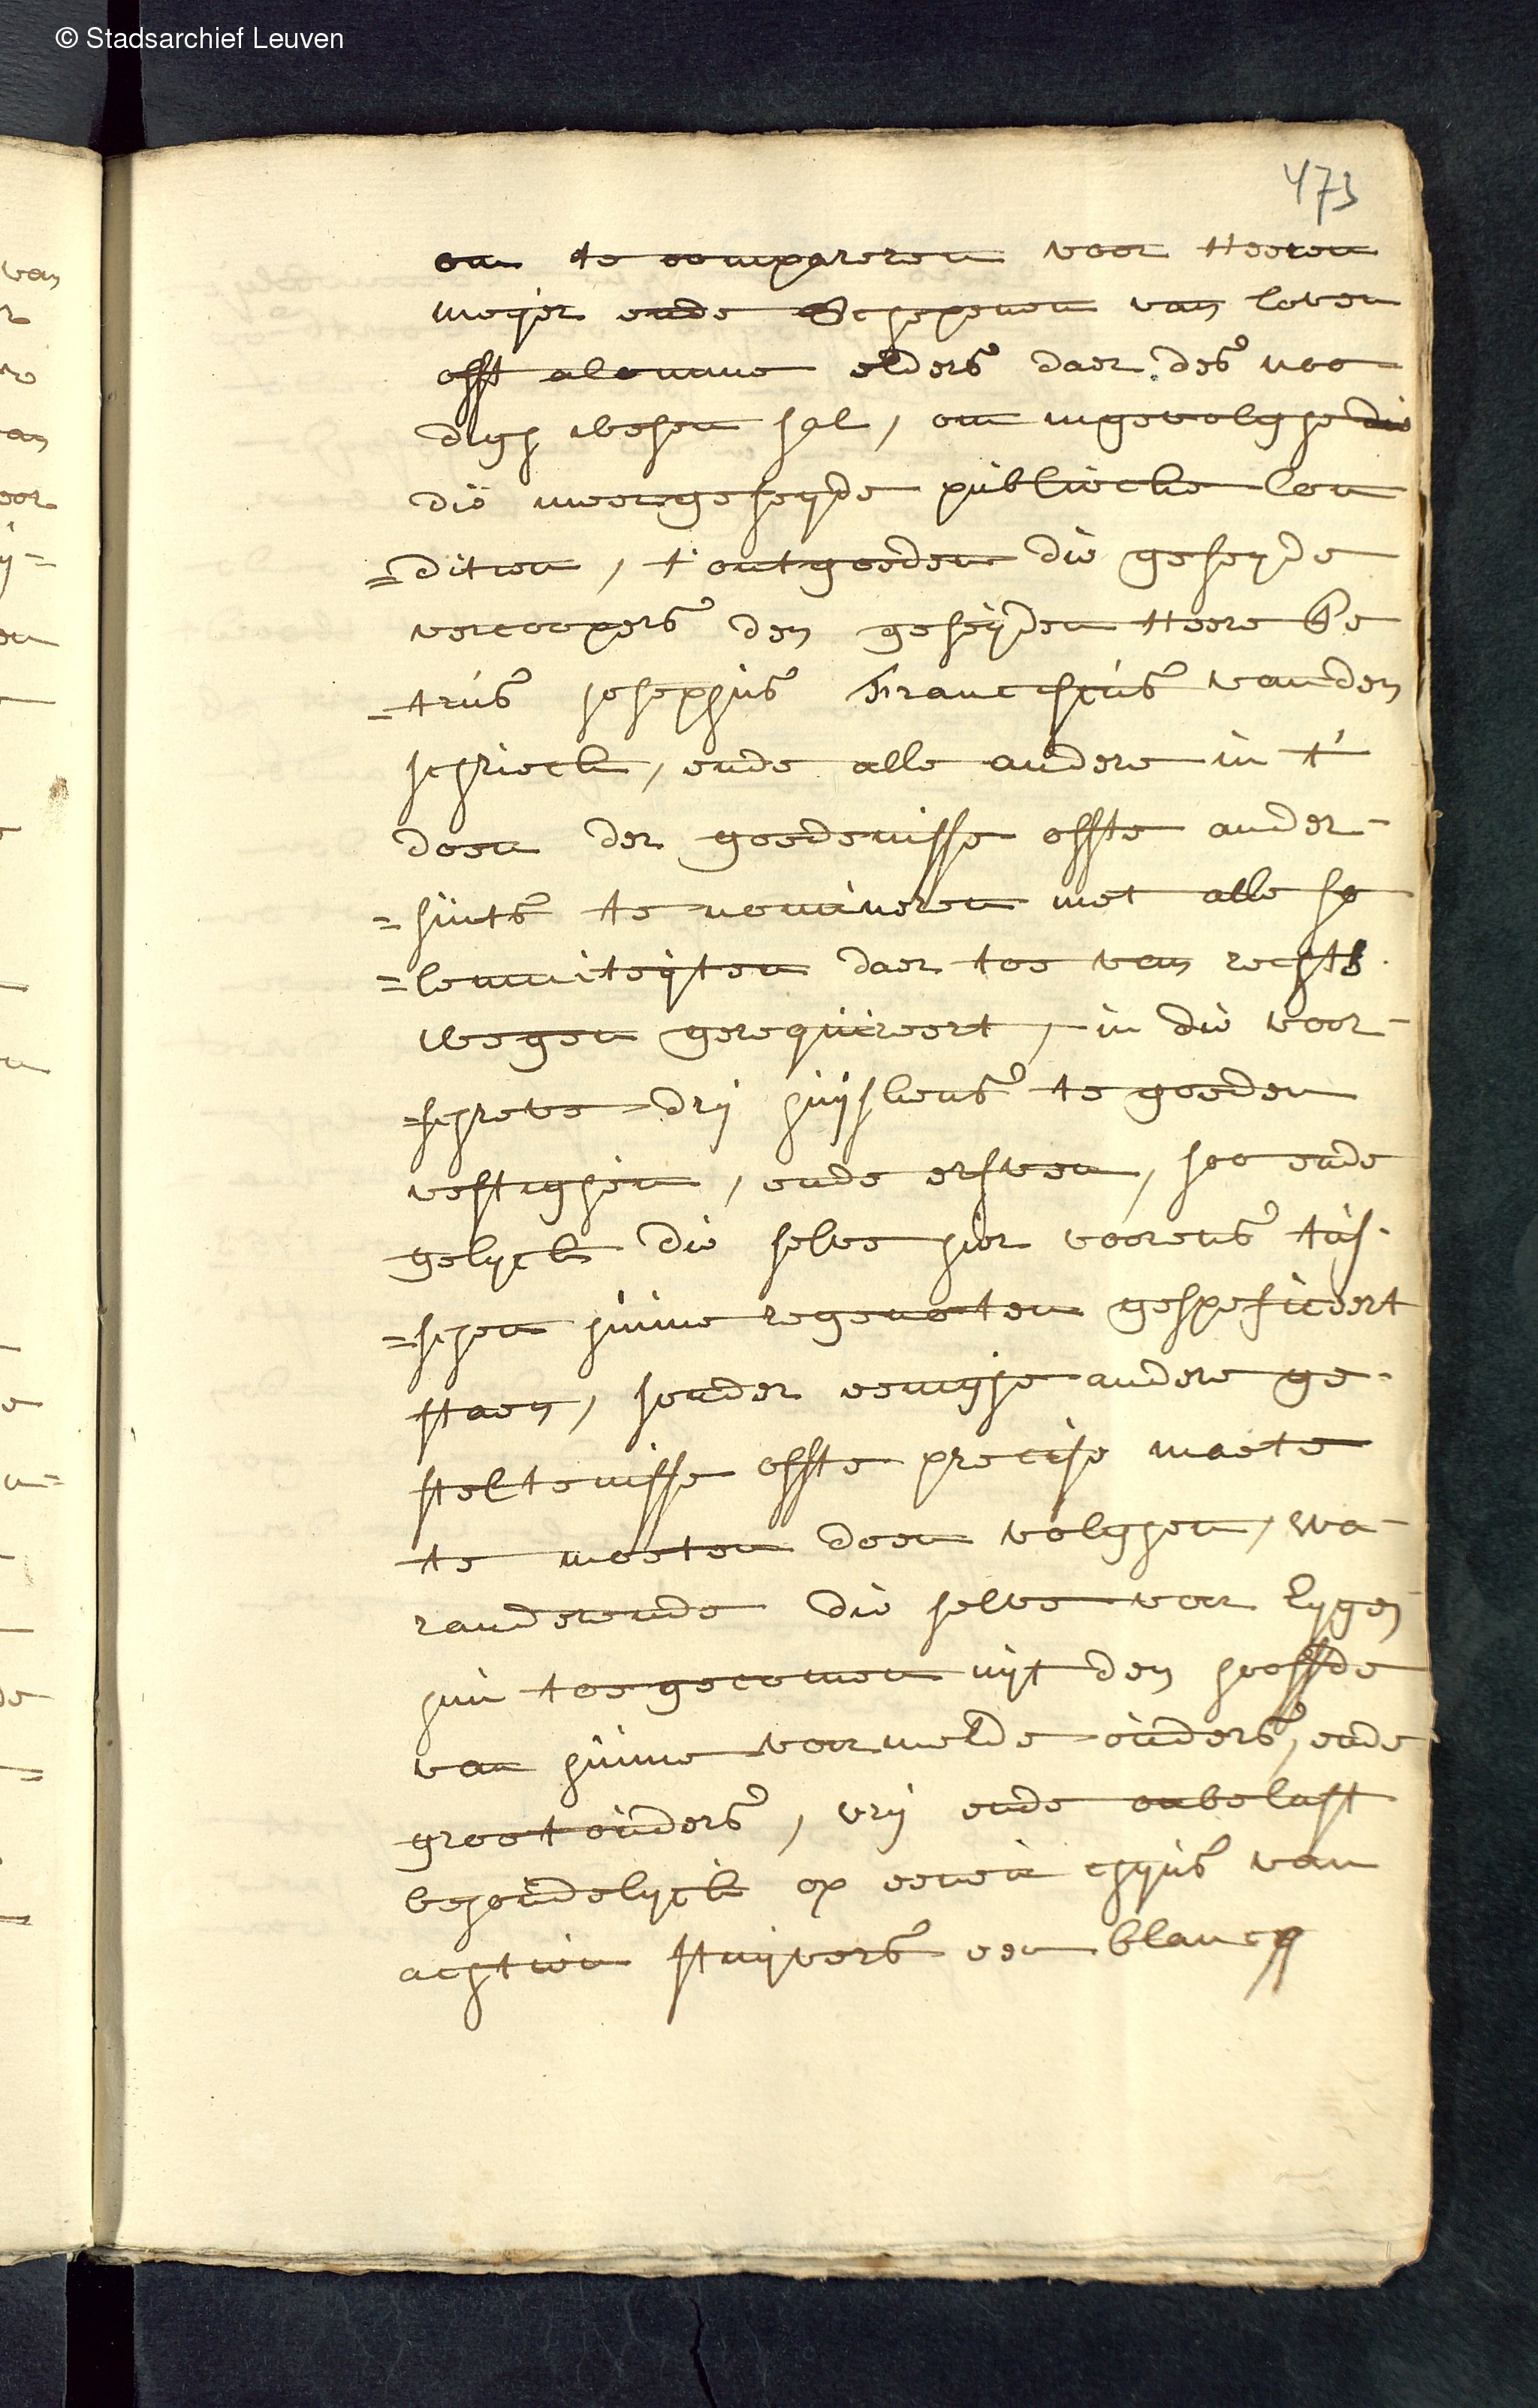 © Stadsarchief Leuven
473
om te compareren voor Heeren
meijer ende Schepenen van loven
offt alomme elders daer des noo
digh wesen sal, om ingevolghe die
die meergeseyde publiecke Con
=ditien, t'ontgoeden die geseyde
vercoopers den geseijden Heere Pe
-trus Josephus Franciscus vanden
schrieck, ende alle andere in t'
doen der goedenisse offte ander-
=sints te nomineren met alle so
=lemniteijten daer toe van rechts
wegen gerequireert, in die voor-
=schreve drij huijskens te goeden
vestighen, ende erfven, soo ende
gelyck die selve hier voorens tus-
=schen hunne regenoten gespeficeert
staen, sonder eenighe andere ge-
steltenisse offte precise maete
te moeten doen volghen, wa-
randerende die selve voor eygen
hun toegecomen uijt den hooffde
van hunne voormelde ouders, ende
grootouders, vrij ende onbelast
behoudelyck op eenen chyns van
achtien stuijvers een blancq